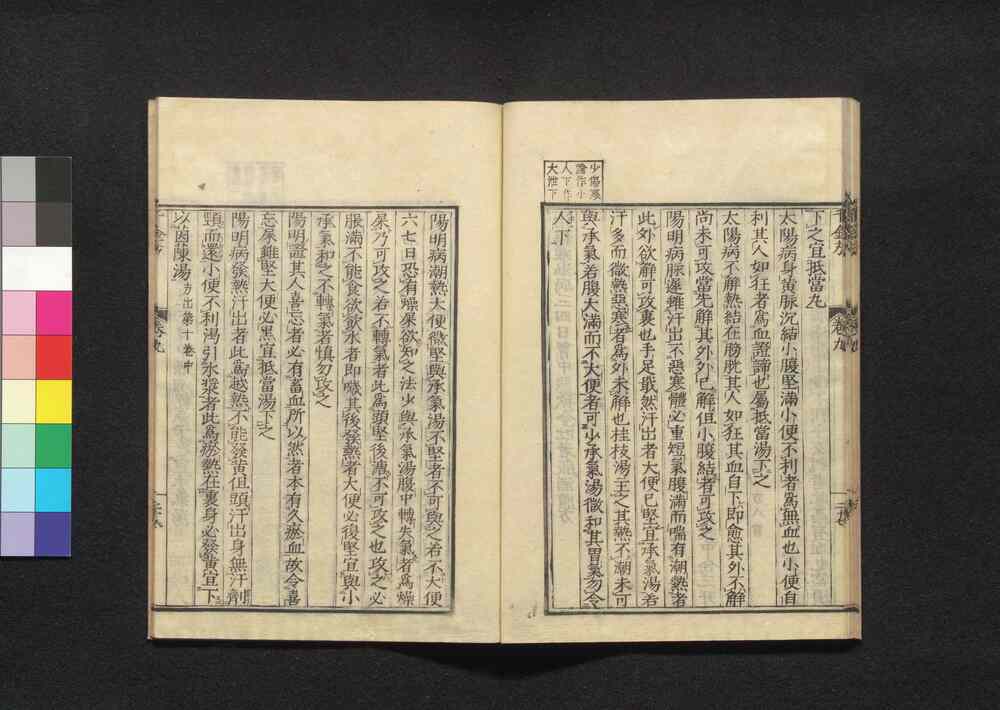 少傷寒
論作小
人下作
大泄下
下之宜抵當丸
太陽病身黄脉沉結小腹堅滿小便不利者爲無血也小便自
利其人如狂者爲血證諦也屬抵當湯下之
太陽病不解熱結在膀胱其人如狂其血自下即愈其外不解
尚未可攻當先解其外外已解但小腹結者可攻之
陽明病脉遲雖汗出不惡寒體必重短氣腹滿而喘有潮熱者
此外欲解可攻裏也手足濈然汗出者大便已堅宜承氣湯若
汗多而微熱惡寒者爲外未解也桂枝湯主之其熱不潮未可
與承氣若腹大滿而不大便者可少承氣湯微和其胃氣勿令
人下
千金方
卷九
陽明病潮熱大便微堅與承氣湯不堅者不可與之若不大便
六七日恐有燥屎欲知之法少與承氣湯腹中轉失氣者爲燥
屎乃可攻之若不轉氣者此爲頭堅後溏不可攻之也攻之必
脹滿不能食欲飲水者即噦其後發熱者大便必復堅宜與小
承氣和之不轉氣者慎勿攻之
陽明證其人喜忘者必有畜血所以然者本有久瘀血故令喜
忘屎雖堅大便必黒宜抵當湯下之
陽明病發熱汗出者此爲越熱不能發黄但頭汗出身無汗劑
頸而還小便不利渴引水漿者此爲瘀熱在裏身必發黄宜下
以茵陳湯方出第十卷中